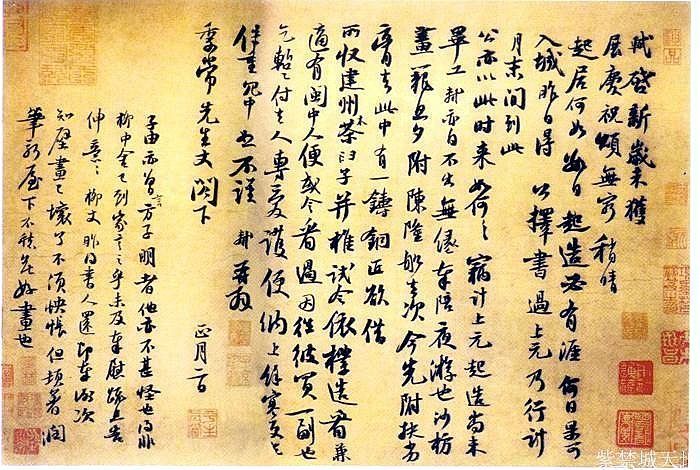 軾啓新歳未獲
展慶祝頌無窮稍晴
起居何如數日起造必有涯何日果可
入城昨日得公擇書過上元乃行計
月末間到此
公亦以此時来如何〃竊計上元起造尚未
畢工軾亦自不出無緣奉陪夜游也沙枋
畫籠旦夕附陳隆船去次今先附扶劣
膏去此中有一鑄銅匠欲借
所收建州木茶臼子并椎試令依樣造看兼
適有閩中人便或令看過因往彼買一副也
乞蹔付去人專愛護便納上餘寒更乞
保重冗中恕不謹軾再拜
季常先生丈閤下
正月二日
子由亦曾言方子明者他亦不甚怪也得非
柳中舍已到家言之乎未及奉慰疏且告
伸意〃柳丈昨得書人還即奉謝次
知壁畫已壞了不須怏悵但頓著潤
筆新屋下不愁無好畫也
紫禁城天